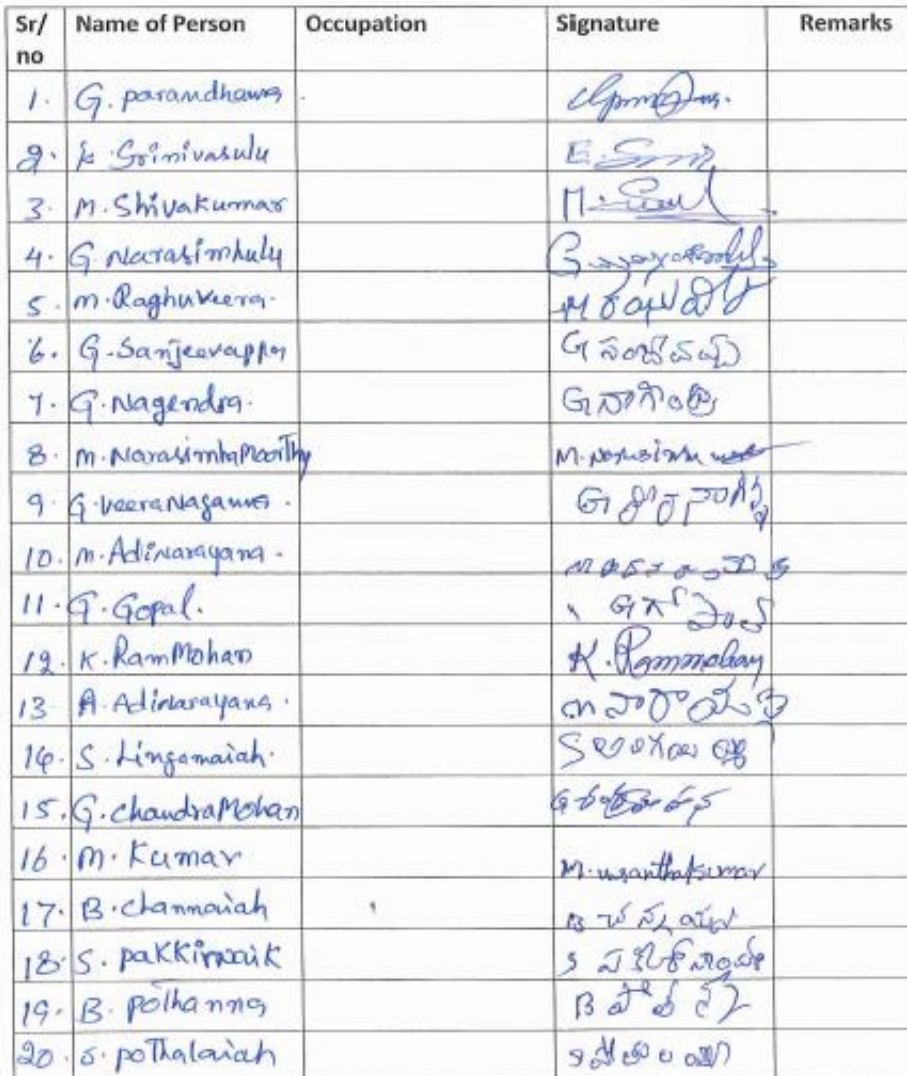 Sr/ Name of Person Occupation Signature Remarks
no
1. G. parandhama
2. K. Srinivasulu E.
3. M. Shivakumar M.
4. G Narasimhulu G
5. M. Raghuveera. M రఘువీర
6. G. Sanjeevappa G సంజీవప్ప
7. G. Nagendra. G నాగేంద్ర
8. M. NarasimhaMoorthy M. Narasimha
9. G. VeeraNaganna. G వీరనాగన్న
10. M. Adinarayana.
11. G. Gopal. G గోపాల్
12. K. RamMohan K. Rammohan
13 A. Adinarayana. నారాయణ
14. S. Lingamaiah. S లింగమయ్య
15. G. ChandraMohan G చంద్రమోహన్
16. M. Kumar M. vasanthakumar
17. B. Channaiah B చన్నయ్య
18. S. Pakkirnaik S పకీర్ నాయక్
19. B. Pothanna B పోతన్న
20. S. Pothalaiah S పోతులయ్య